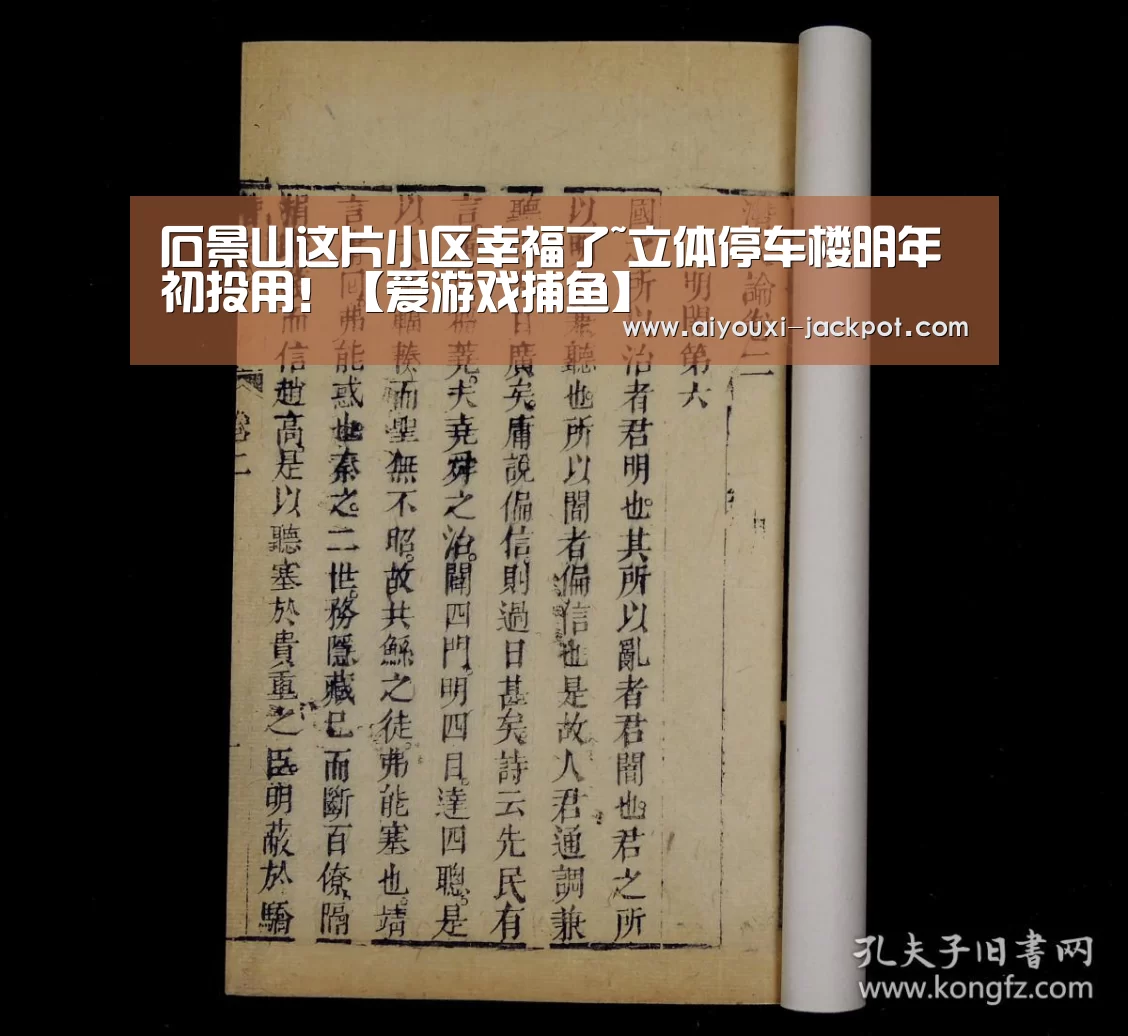 石景山这片小区幸福了~立体停车楼明年
初投用！【爱游戏捕鱼】
www.aiyouxi-jackpot.com
論卷二
明闇第六
國 所以治者君明也其所以亂者君闇也君之所
以 兼聽也所以闇者偏信也是故人君通調兼
聽 日廣矣庸說偏信則過日甚矣詩云先民有
言 蕘夫堯舜之治闢四門明四目達四聰是
以 輻輳而聖無不昭故共鯀之徒弗能塞也靖
言 回弗能惑也秦之二世務隱藏己而斷百僚隔
捐 而信趙高是以聽塞於貴重之臣明蔽於驕
卷二
孔夫子旧书网
www.kongfz.com